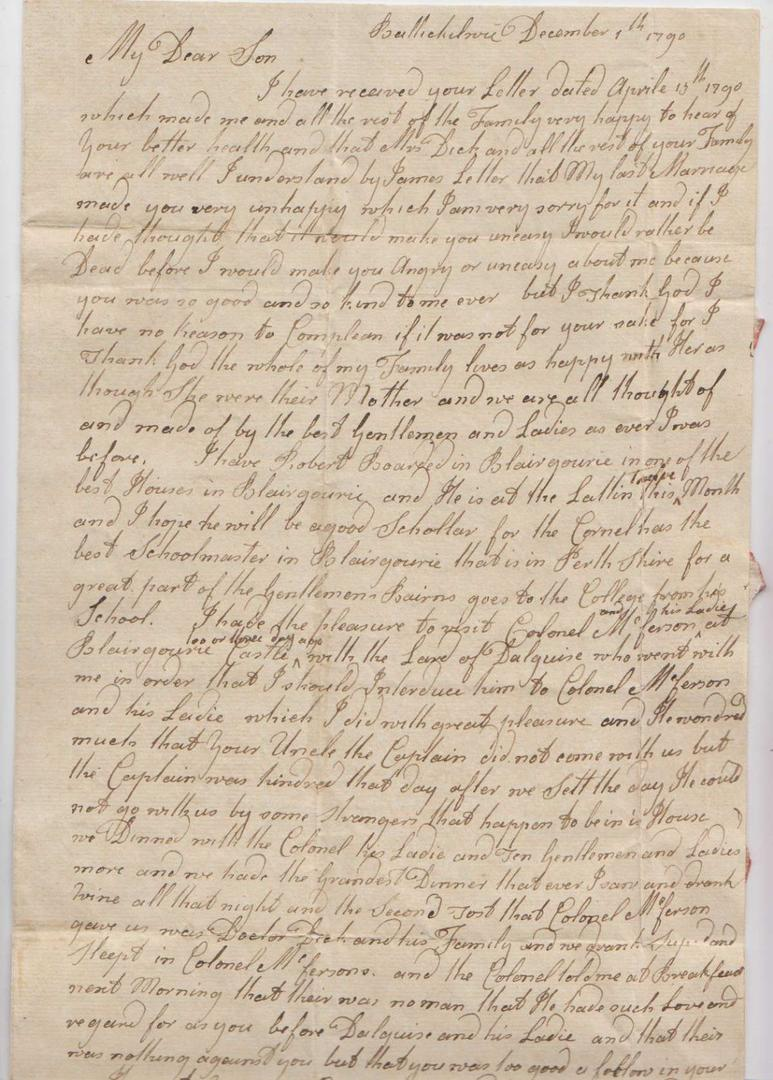 Ballichelvie December 1th 1790
My Dear Son
I have received your Letter dated Aprile 15th 1790
which made me and all the rest of the Family very happy to hear of
Your better health and that Mrs Dick and all the rest of your Family
are all well I understand by James Letter that My last Marriage
made you very unhappy which I am very sorry for it and if I
hade thought that it would make you uneasy I would rather be
Dead before I would make you Angry or uneasy about me because
you was so good and so kind to me ever but I Thank God I
have no Reason to Complean if it was not for your sake for I
Thank God the whole of my Family lives as happy with Her as
though She were their Mother and we are all thought of
and made of by the best Gentlemen and Ladies as ever I was
before. I have Robert Boared in Blairgourie in one of the
best Houses in Blairgourie and He is at the Lattin this Twelve Month
and I hope he will be a good Schollar for the Cornel has the
best Schoolmaster in Blairgourie that is in Perth Shire for a
great part of the Gentlemens Bairns goes to the College from his
School. I hade the pleasure to visit Colonel McFerson and his Ladie at
Blairgourie Castle too or three day ago with the Lard of Dalguise who went with
me in order that I should Interduce him to Colonel McFerson
and his Ladie which I did with great pleasure and He wondred
much that Your Uncle the Captain did not come with us but
the Captain was hindred that day after we Sett the day He could
not go with us by some strangers that happen to be in is House
we Dinned with the Colonel his Ladie and Ten Gentlemen and Ladies
more and we hade the Grandest Dinner that ever I saw and drank
Wine all that night and the Second Tost that Colonel McFerson
gave us was Doctor Deck and his Family and we drank Suped and
Sleept in Colonel McFersons. and the Colonel told me at Breakfeast
next Morning that their was no man that He hade such Love and
regard for as you before Dalguise and his Ladie and that their
was nothing against you but that you was too good a fellow in your